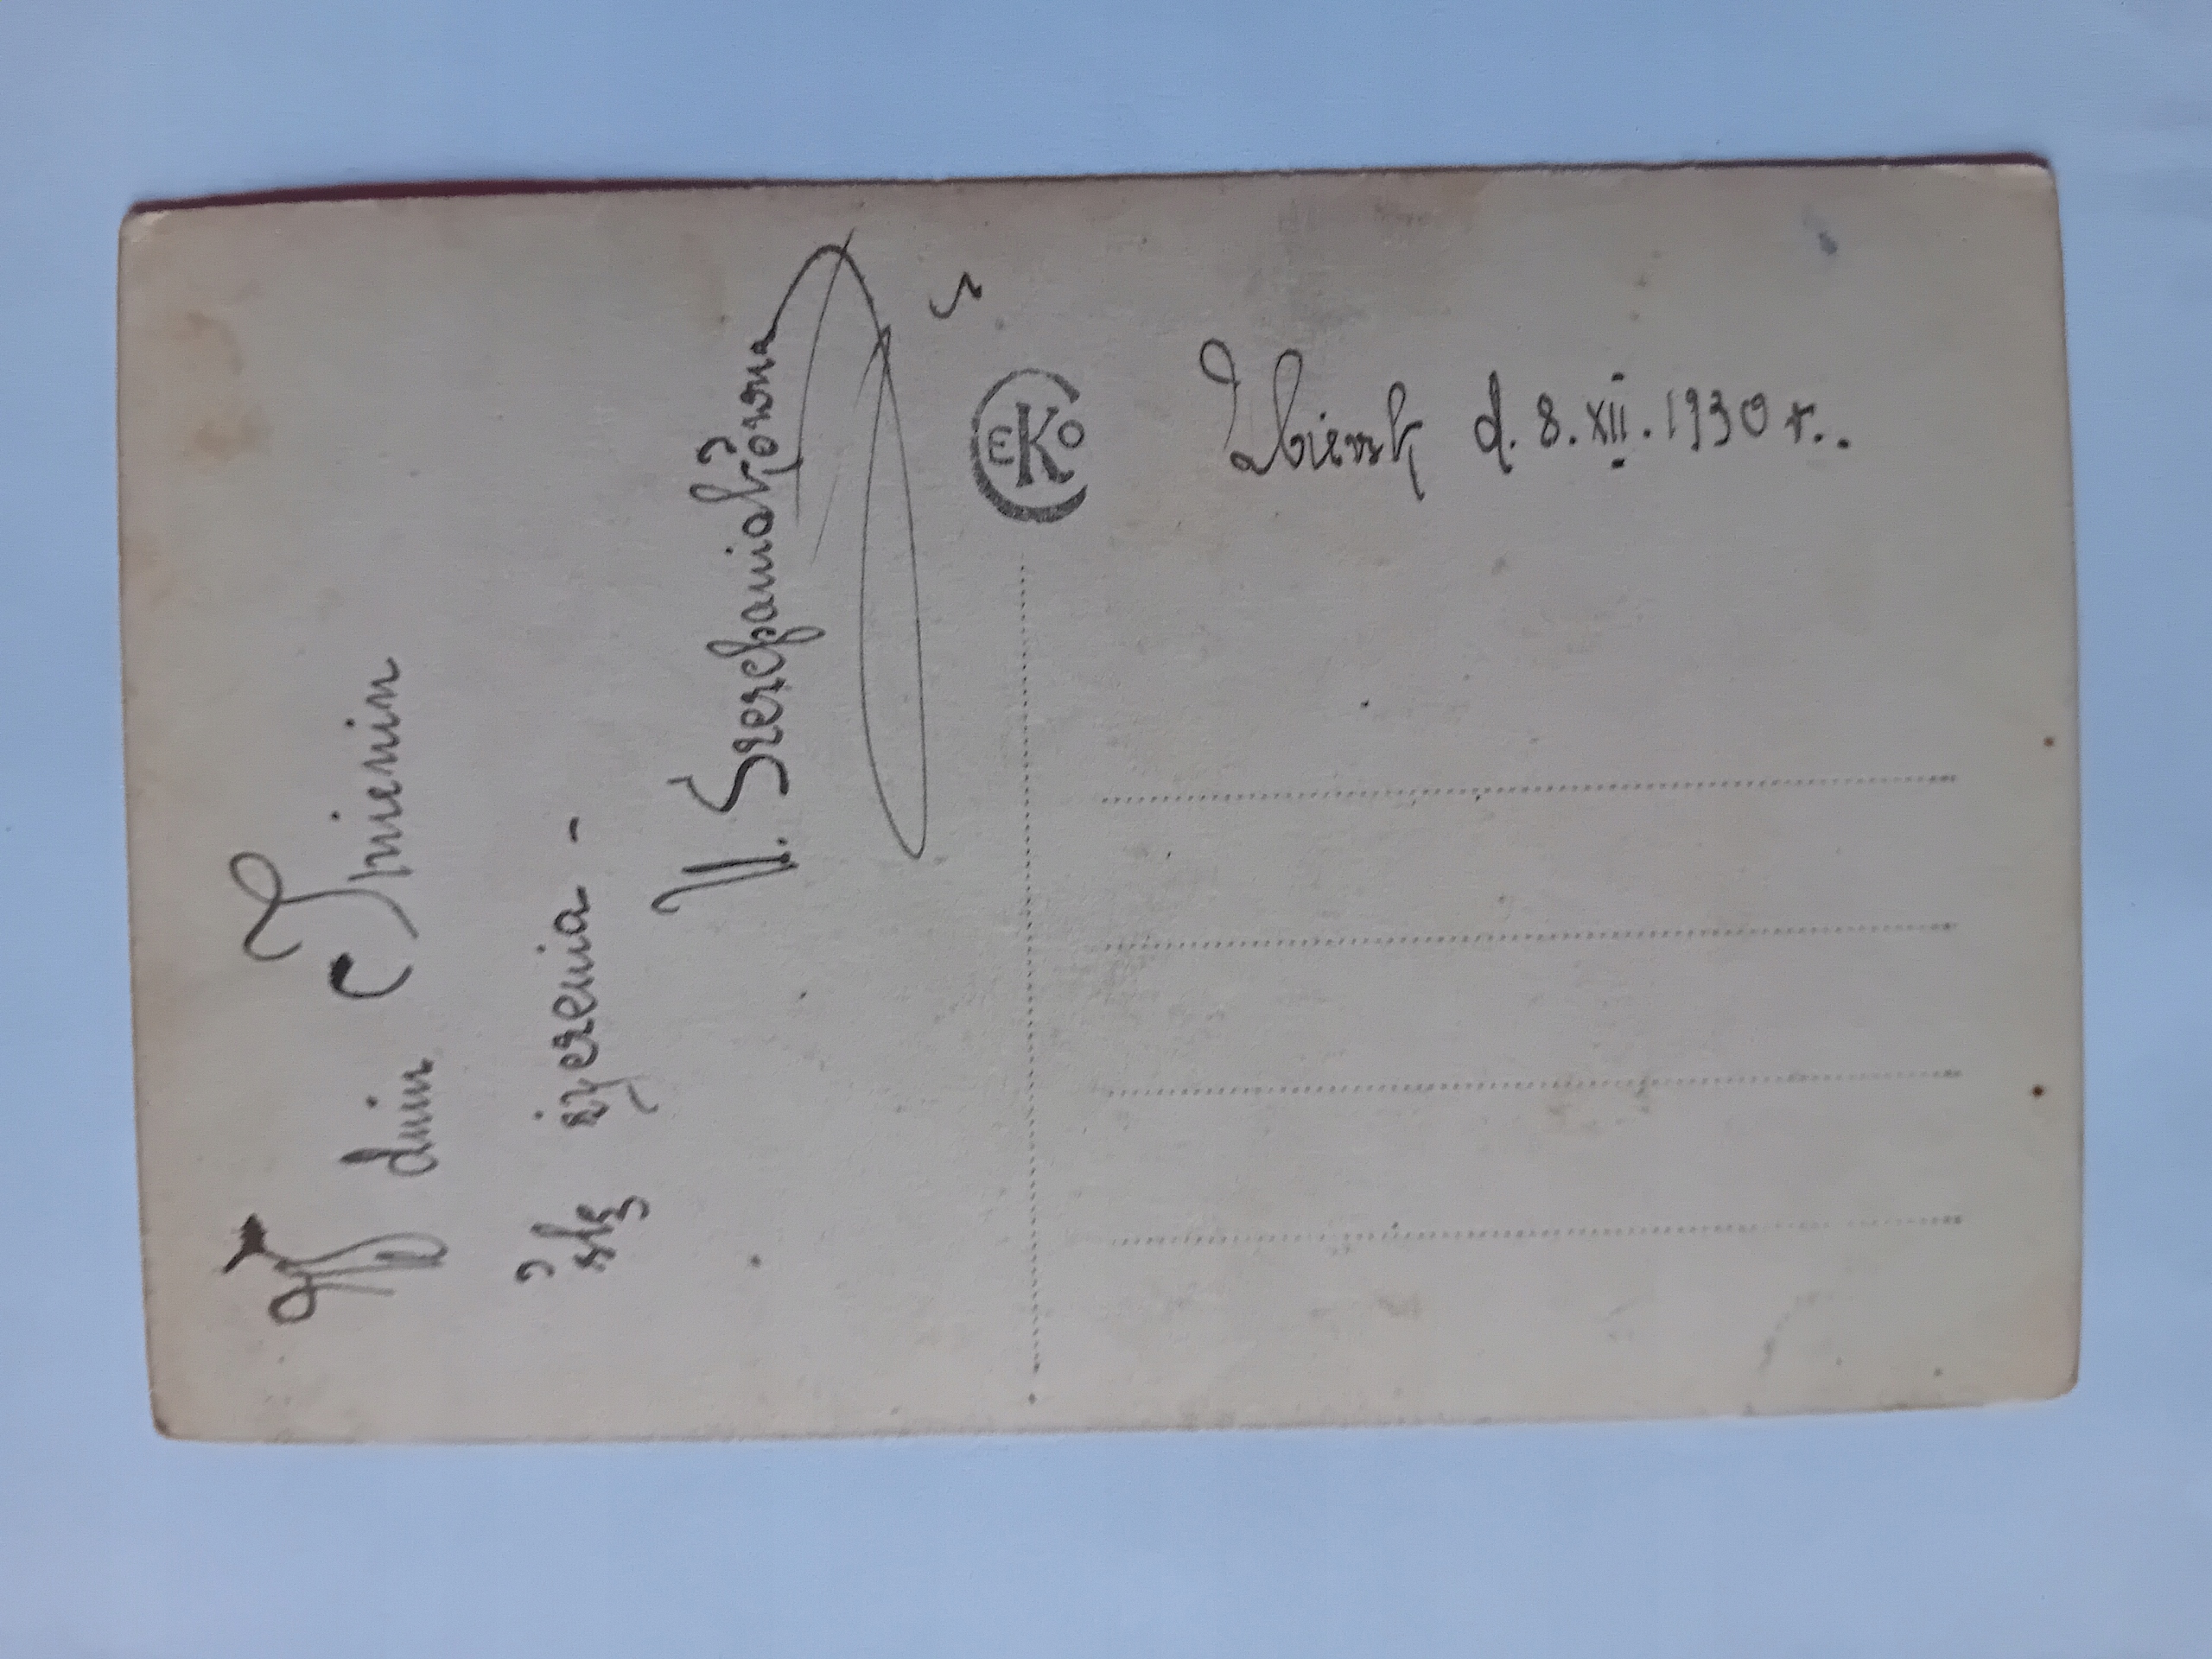 W dniu Imienin
ślę życzenia -
Szczepaniakówna
EKO
Zbiersk d. 8. XII. 1930 r..